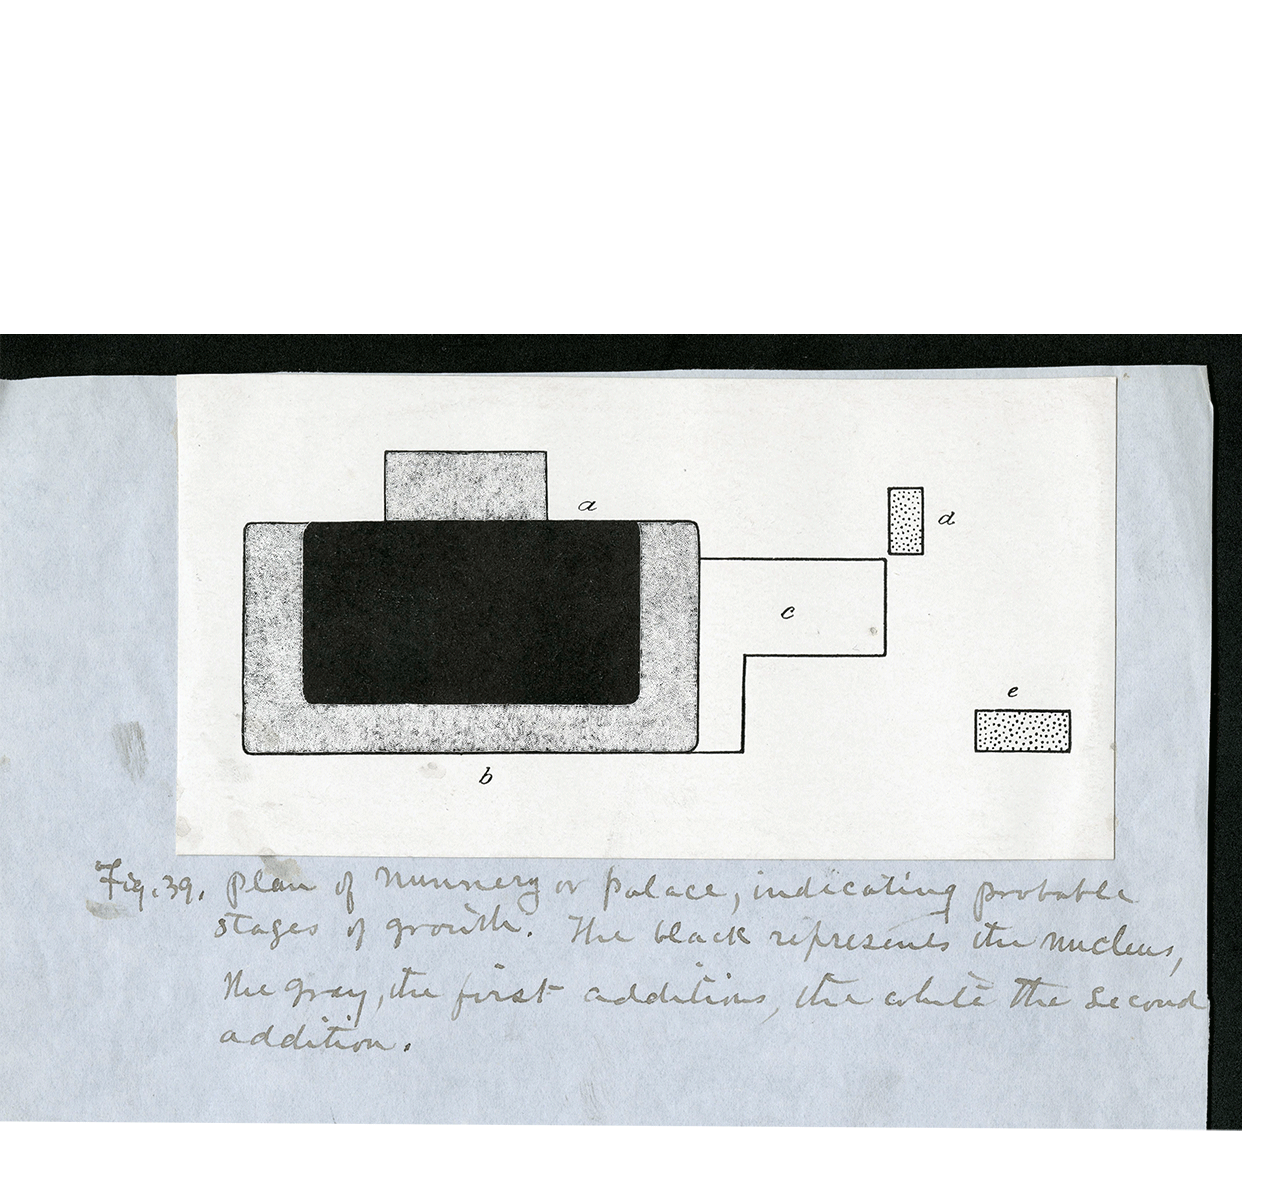 a
d
c
e
b
Fig. 39. Plan of Nunnery or Palace, indicating probable
stages of growth. The black represents the nucleus,
the gray, the first additions, the white the second
addition.